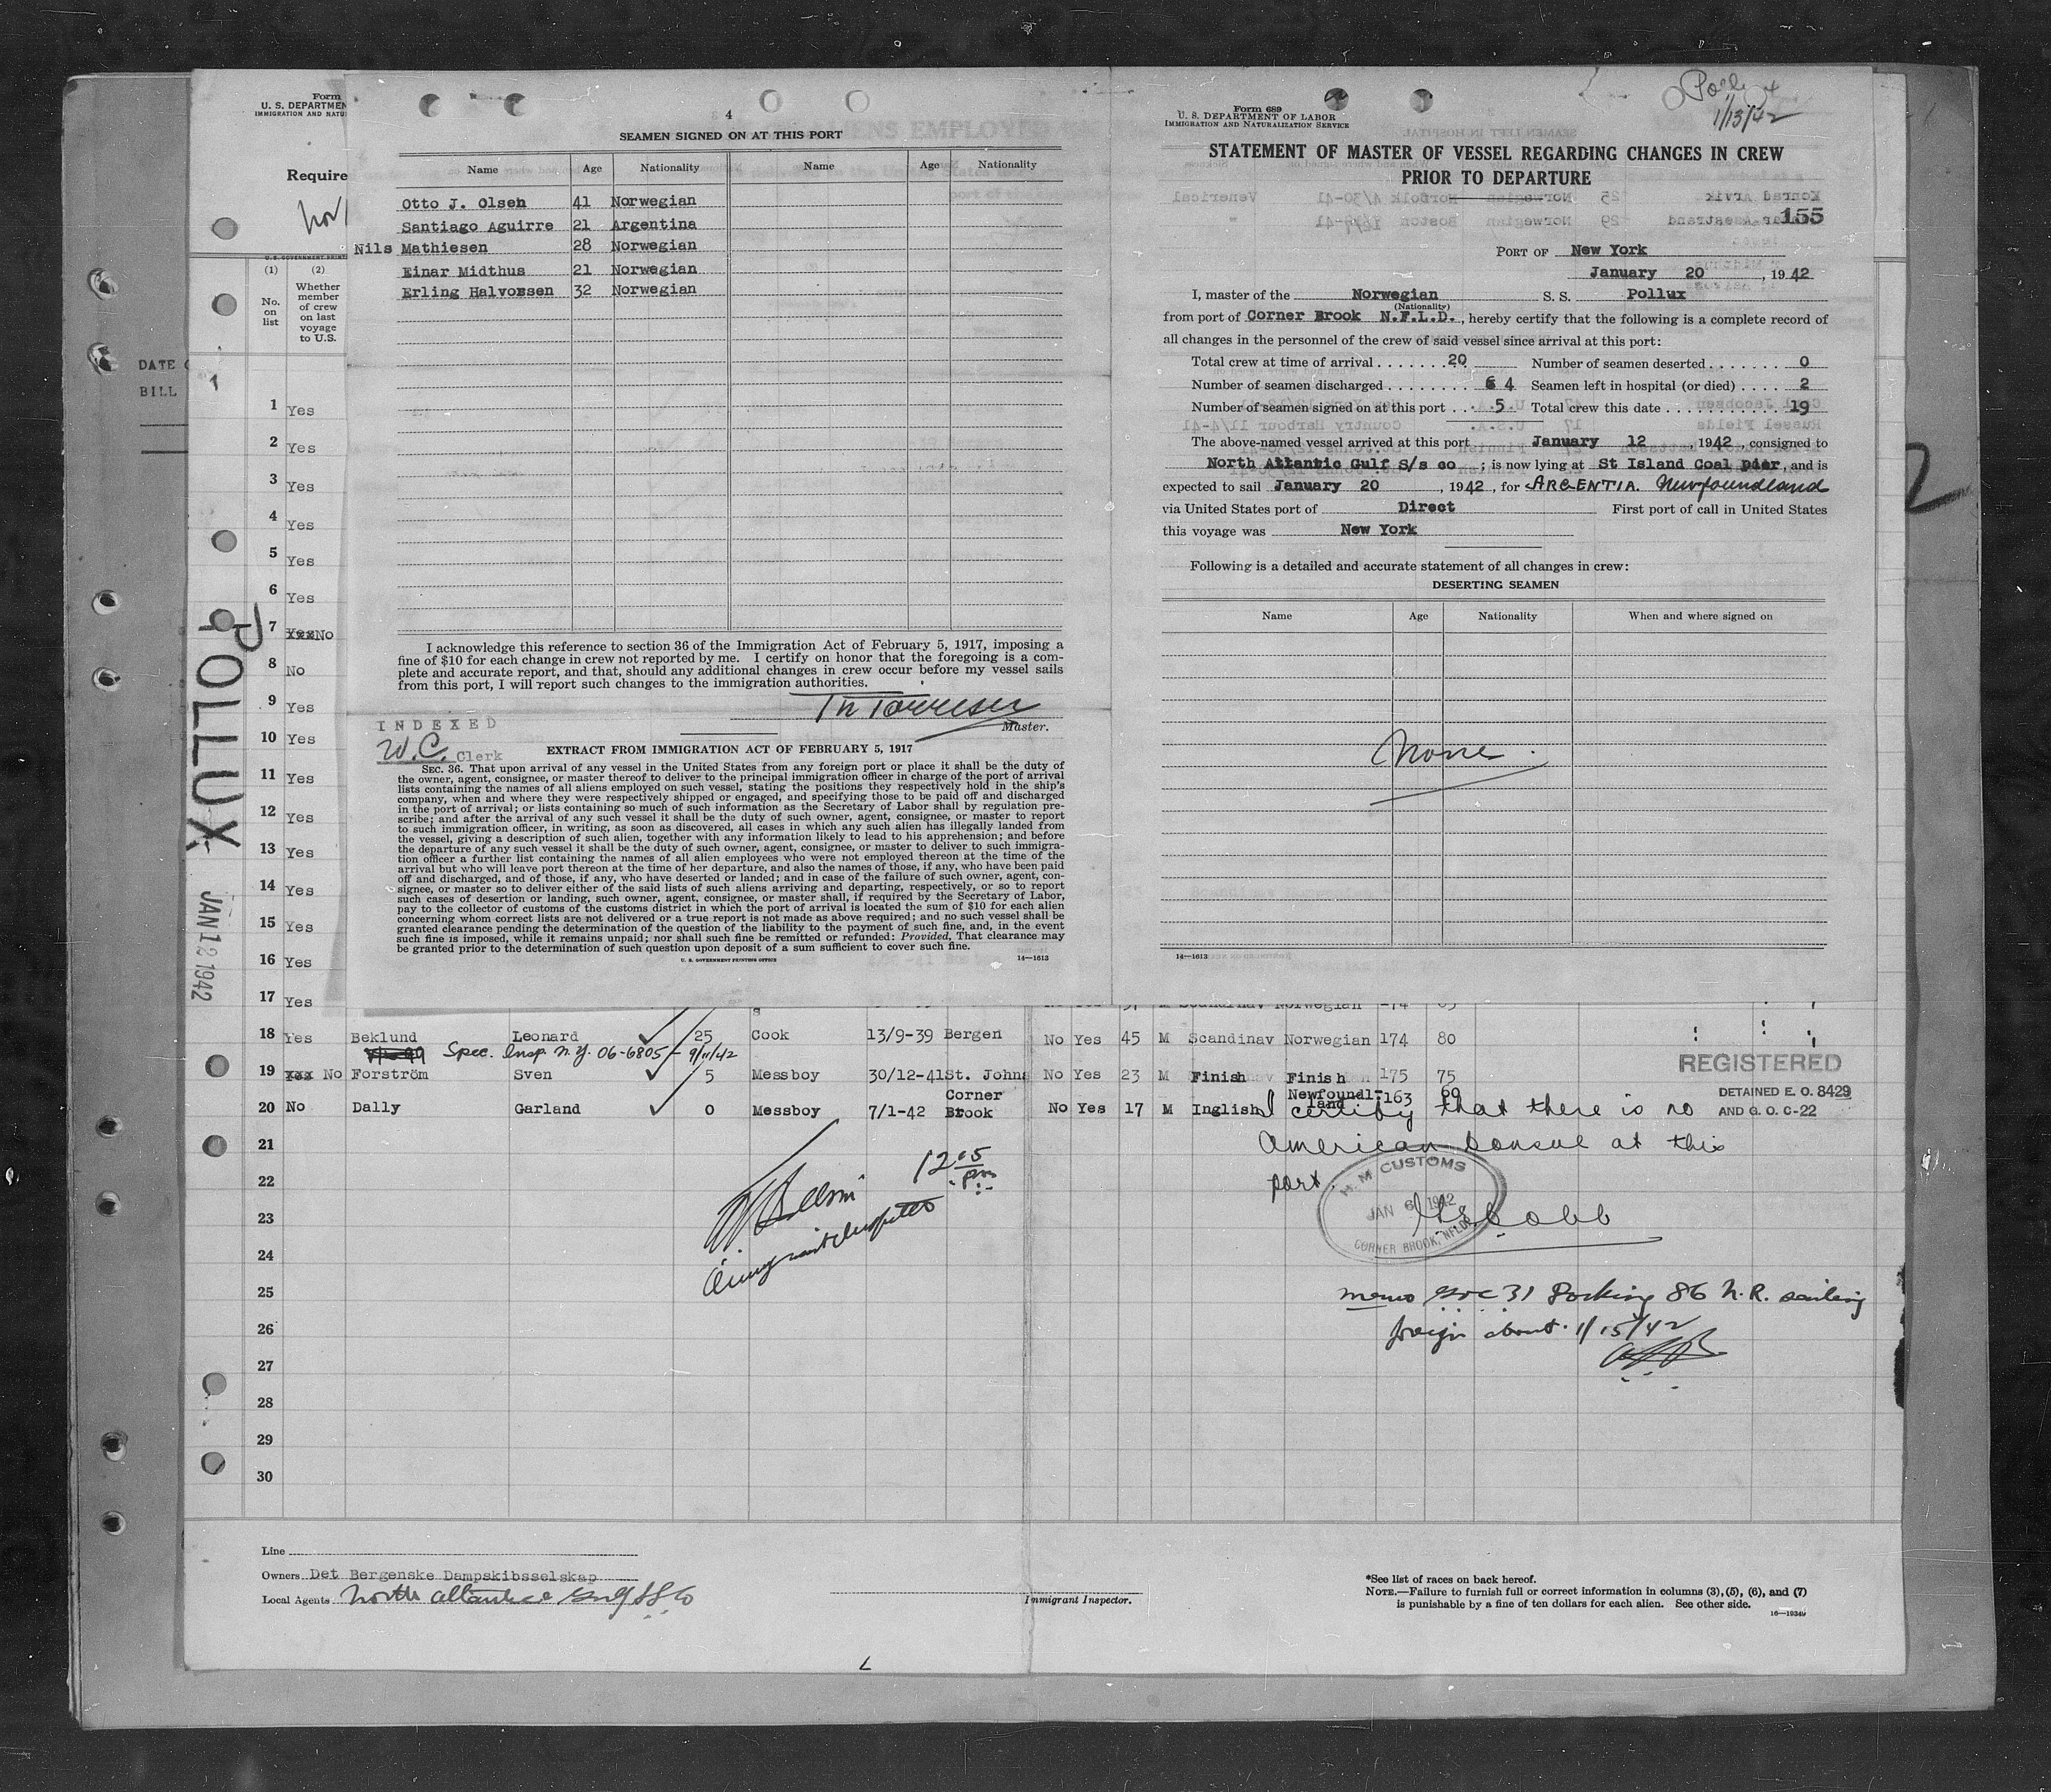 4
SEAMEN SIGNED ON AT THIS PORT
Name Age Nationality Name Age Nationality
Otto J. Olsen 41 Norwegian
Santiago Aguirre 21 Argentina
Nils Mathiesen 28 Norwegian
Einar Midthus 21 Norwegian
Erling Halvorsen 32 Norwegian
I acknowledge this reference to section 36 of the Immigration Act of February 5, 1917, imposing a
fine of $10 for each change in crew not reported by me. I certify on honor that the foregoing is a com-
plete and accurate report, and that, should any additional changes in crew occur before my vessel sails
from this port, I will report such changes to the immigration authorities.
Master.
INDEXED
W.C. Clerk
EXTRACT FROM IMMIGRATION ACT OF FEBRUARY 5, 1917
SEC. 36. That upon arrival of any vessel in the United States from any foreign port or place it shall be the duty of
the owner, agent, consignee, or master thereof to deliver to the principal immigration officer in charge of the port of arrival
lists containing the names of all aliens employed on such vessel, stating the positions they respectively hold in the ship's
company, when and where they were respectively shipped or engaged, and specifying those to be paid off and discharged
in the port of arrival; or lists containing so much of such information as the Secretary of Labor shall by regulation pre-
scribe; and after the arrival of any such vessel it shall be the duty of such owner, agent, consignee, or master to report
to such immigration officer, in writing, as soon as discovered, all cases in which any such alien has illegally landed from
the vessel, giving a description of such alien, together with any information likely to lead to his apprehension; and before
the departure of any such vessel it shall be the duty of such owner, agent, consignee, or master to deliver to such immigra-
tion officer a further list containing the names of all alien employees who were not employed thereon at the time of the
arrival but who will leave port thereon at the time of her departure, and also the names of those, if any, who have been paid
off and discharged, and of those, if any, who have deserted or landed; and in case of the failure of such owner, agent, con-
signee, or master so to deliver either of the said lists of such aliens arriving and departing, respectively, or so to report
such cases of desertion or landing, such owner, agent, consignee, or master shall, if required by the Secretary of Labor,
pay to the collector of customs of the customs district in which the port of arrival is located the sum of $10 for each alien
concerning whom correct lists are not delivered or a true report is not made as above required; and no such vessel shall be
granted clearance pending the determination of the question of the liability to the payment of such fine, and, in the event
such fine is imposed, while it remains unpaid; nor shall such fine be remitted or refunded: Provided, That clearance may
be granted prior to the determination of such question upon deposit of a sum sufficient to cover such fine.
U. S. GOVERNMENT PRINTING OFFICE 14—1613
1/13/42
Form 689
U. S. DEPARTMENT OF LABOR
IMMIGRATION AND NATURALIZATION SERVICE
STATEMENT OF MASTER OF VESSEL REGARDING CHANGES IN CREW
PRIOR TO DEPARTURE
155
PORT OF New York
January 20, 1942
I, master of the Norwegian S. S. Pollux
(Nationality)
from port of Corner Brook N.F.L.D., hereby certify that the following is a complete record of
all changes in the personnel of the crew of said vessel since arrival at this port:
Total crew at time of arrival 20 Number of seamen deserted 0
Number of seamen discharged 6 4 Seamen left in hospital (or died) 2
Number of seamen signed on at this port 5 Total crew this date 19
The above-named vessel arrived at this port January 12, 1942, consigned to
North Atlantic Gulf S/s co; is now lying at St Island Coal pier, and is
expected to sail January 20, 1942, for ARGENTIA. Newfoundland
via United States port of Direct First port of call in United States
this voyage was New York
Following is a detailed and accurate statement of all changes in crew:
DESERTING SEAMEN
Name Age Nationality When and where signed on
None
14—1613
2
Form
U. S. DEPARTMEN
IMMIGRATION AND NATU
Require
(1) (2)
No. on list
Whether member of crew on last voyage to U.S.
DATE
BILL
POLLUX
JAN 12 1942
1 Yes
2 Yes
3 Yes
4 Yes
5 Yes
6 Yes
7 Yes No
8 No
9 Yes
10 Yes
11 Yes
12 Yes
13 Yes
14 Yes
15 Yes
16 Yes
17 Yes M Scandinav Norwegian 174
18 Yes Beklund Leonard 25 Cook 13/9-39 Bergen No Yes 45 M Scandinav Norwegian 174 80
Spec. Insp. N.Y. 06-6805 - 9/11/42
19 xxx No Forström Sven 5 Messboy 30/12-41 St. Johns No Yes 23 M Finish Finish 175 75
20 No Dally Garland 0 Messboy 7/1-42 Corner Brook No Yes 17 M Inglish Newfoundl-land 163 60
REGISTERED
DETAINED E. O. 8429
AND G. O. C-22
I certify that there is no
American Consul at this
port.
H. M CUSTOMS
JAN 6 1942
CORNER BROOK, NFLD
21
22
23
24
25
26
27
28
29
30
12 05 pm
memo 31 86 N.R. sailing
foreign about 1/15/42
Line
Owners Det Bergenske Dampskibsselskap
Local Agents North Atlantic Gulf SS Co
Immigrant Inspector.
*See list of races on back hereof.
NOTE.—Failure to furnish full or correct information in columns (3), (5), (6), and (7)
is punishable by a fine of ten dollars for each alien. See other side.
16—19349